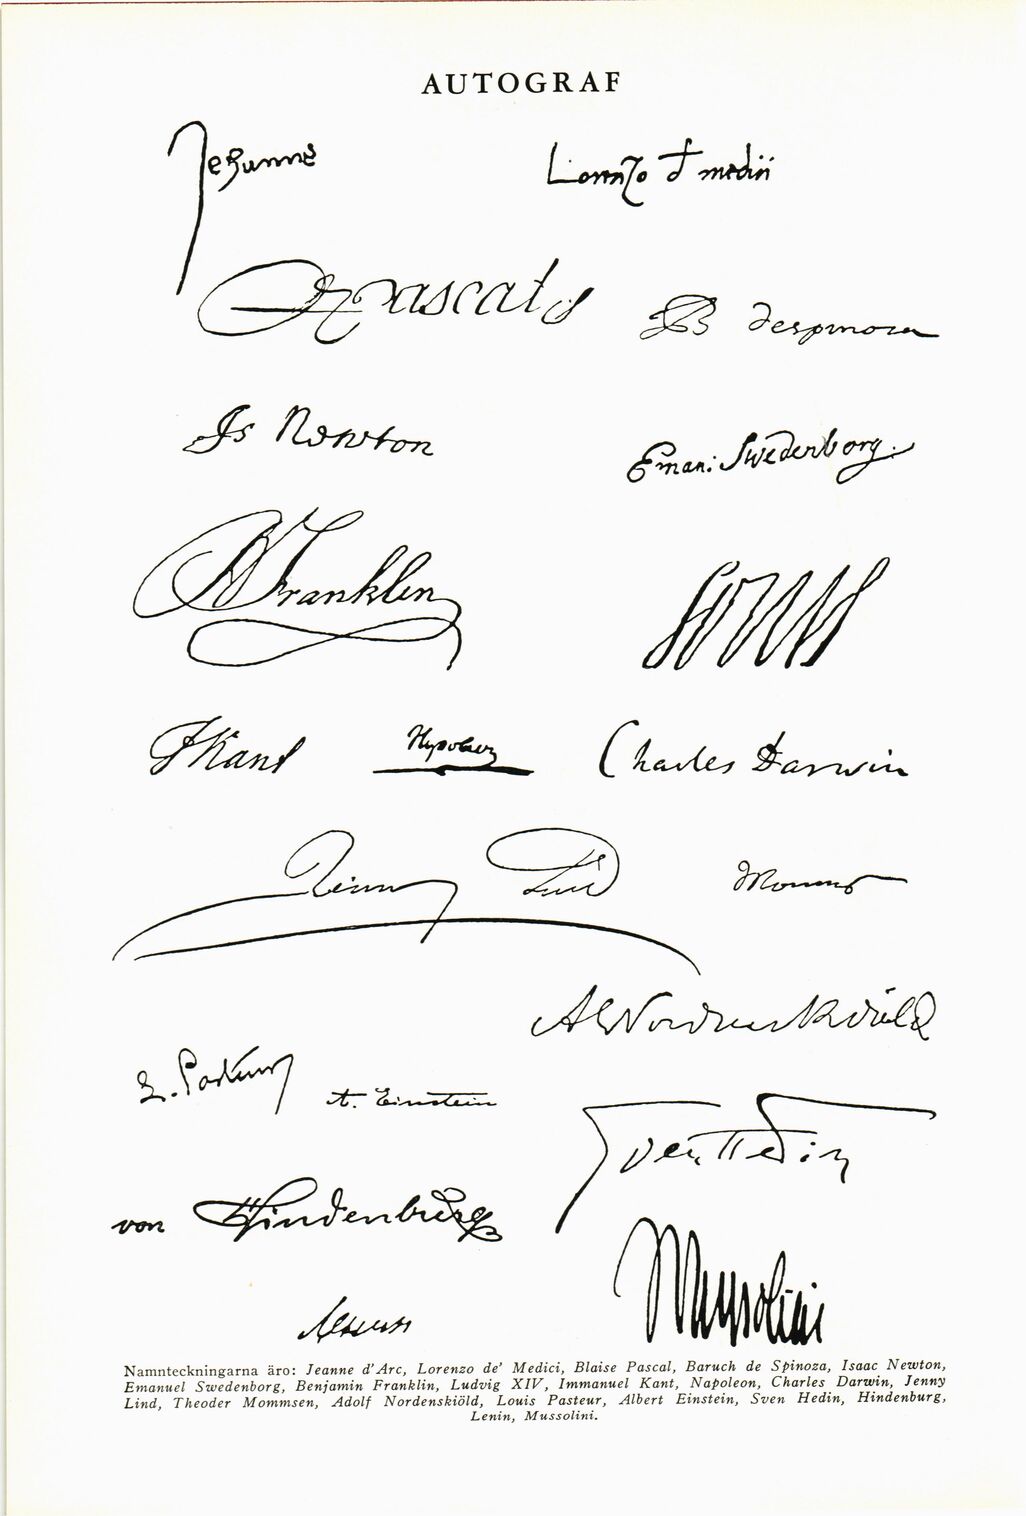 AUTOGRAF
Jehanne
Lorenzo d medici
Pascal
B despinoza
Is Newton
Eman: Swedenborg.
B Franklin
Louis
I Kant
Charles Darwin
Jenny Lind
Mommsen
AENordenskiöld
L. Pasteur
A. Einstein
Sven Hedin
von Hindenburg
Mussolini
Namnteckningarna äro: Jeanne d'Arc, Lorenzo de' Medici, Blaise Pascal, Baruch de Spinoza, Isaac Newton,
Emanuel Swedenborg, Benjamin Franklin, Ludvig XIV, Immanuel Kant, Napoleon, Charles Darwin, Jenny
Lind, Theoder Mommsen, Adolf Nordenskiöld, Louis Pasteur, Albert Einstein, Sven Hedin, Hindenburg,
Lenin, Mussolini.